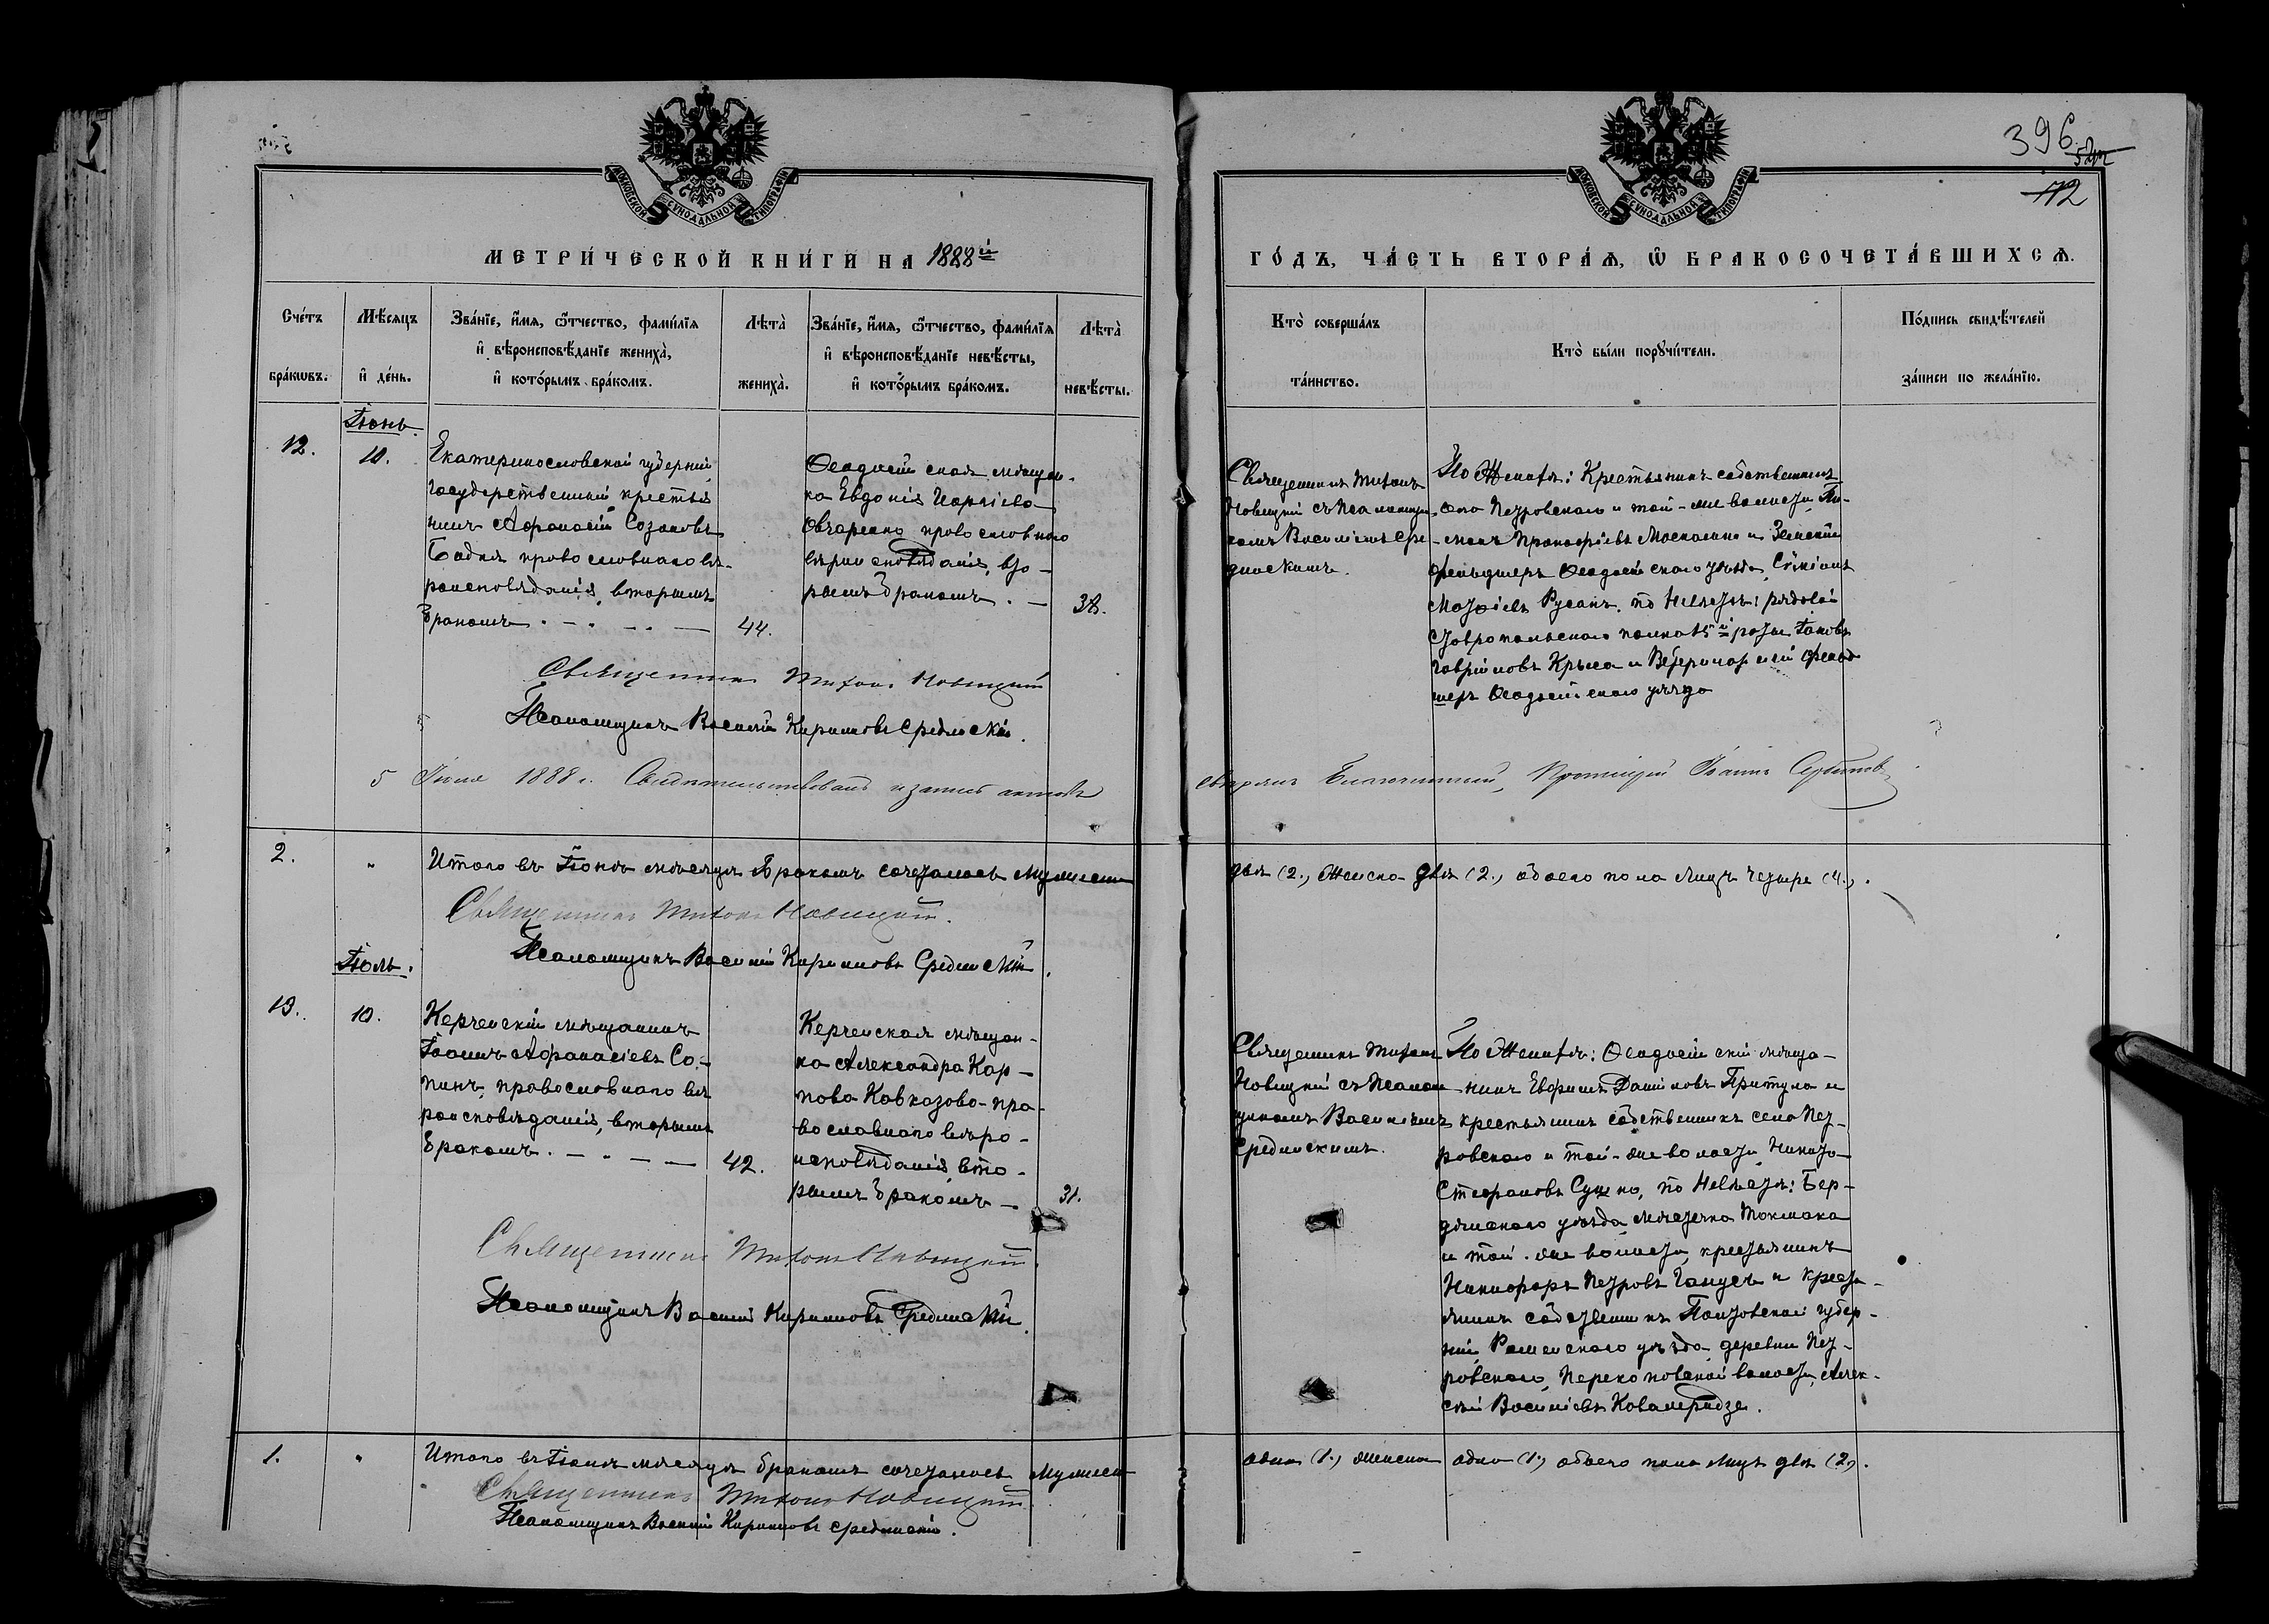 396
112
МОСКОВСКОЙ СѴНОДАЛЬНОЙ ТИПОГРАФІИ
МОСКОВСКОЙ СѴНОДАЛЬНОЙ ТИПОГРАФІИ
МЕТРИ́ЧЕСКОЙ КНИ́ГИ НА 1888й
ГО́ДЪ, ЧА́СТЬ ВТОРА́Ѧ, Ѡ҆ БРАКОСОЧЕТА́ВШИХСѦ.
Сче́тъ бра́кѡвъ.
Мѣ́сѧцъ и҆ де́нь.
Зва́нїе, и҆́мѧ, ѻ҆́тчество, фами́лїѧ
и҆ вѣроисповѣ́данїе жениха̀,
и҆ кото́рымъ бра́комъ.
Лѣта̀ жениха̀.
Зва́нїе, и҆́мѧ, ѻ҆́тчество, фами́лїѧ
и҆ вѣроисповѣ́данїе невѣ́сты,
и҆ кото́рымъ бра́комъ.
Лѣта̀ невѣ́сты.
Кто̀ соверша́лъ та́инство.
Кто̀ бы́ли порꙋчи́тели.
По́дпись свидѣ́телей за́писи по жела́нїю.
Іюнь.
12.
10.
Екатеринославской губерніи
государственный крестья
нинъ Афанасій Созоновъ
Бадня православнаго вѣ-
роисповѣданія, вторымъ
бракомъ.
44.
Ѳеодосійская мѣщан-
ка Евдокія
Овчаренко православнаго
вѣроисповѣданія, вто-
рымъ бракомъ.
38.
Священникъ Тихонъ
Новицкій съ Псаломщи
комъ Василіемъ Сре
динскимъ.
По Женихѣ: Крестьянинъ собственникъ
села Петровскаго и той-же волости,
Прокофіевъ Москаленко и Земскій
фельдшеръ Ѳеодосійскаго уѣзда, Сѵмеонъ
Русанъ. по Невѣстѣ: рядовой
Ставропольскаго полка 15й роты Іаковъ
Гавріиловъ Крыса и Ветеринарный фельд
шеръ Ѳеодосійскаго уѣзда
Священникъ Тихонъ Новицкій
Псаломщикъ Василій Кириловъ Срединскій.
5 Іюля 1888 г. Свидѣтельствовалъ и запись актовъ
Благочинный, Протоіерей Іоаннъ
2.
"
Итого въ Іюнѣ мѣсяцѣ бракомъ сочеталось Мужеска
два (2.) Женска два (2.) обоего пола лицъ четыре (4.).
Священникъ Тихонъ Новицкій.
Псаломщикъ Василій Кириловъ Срединскій.
Іюль.
13.
10.
Керченскій мѣщанинъ
Іоаннъ Афанасіевъ Со-
пинъ, православнаго вѣ
роисповѣданія, вторымъ
бракомъ.
42.
Керченская мѣщан-
ка Александра Кар-
пова Кавказова пра-
вославнаго вѣро-
исповѣданія, вто-
рымъ бракомъ
31.
Священникъ Тихонъ
Новицкій съ Псалом
щикомъ Василіемъ
Срединскимъ.
По Женихѣ: Ѳеодосійскій мѣща-
нинъ Ефимъ Даніиловъ Притула и
крестьянинъ собственникъ села Пет-
ровскаго и той-же волости Никита
Стефановъ Сушко, по Невѣстѣ: Бер-
дянскаго уѣзда мѣстечка Токмака
и той-же волости, крестьянинъ
Никифоръ Петровъ Ганусъ и крест-
янинъ собственникъ Полтавской губер-
ніи, Роменскаго уѣзда деревни Пет-
ровскаго, Перекоповской волости, Алек-
сѣй Василіевъ
Священникъ Тихонъ Новицкій.
Псаломщикъ Василій Кириловъ Срединскій.
1.
"
Итого въ Іюлѣ мѣсяцѣ бракомъ сочеталось Мужеска
одинъ (1.) Женска одна (1.) обоего пола лицъ два (2).
Священникъ Тихонъ Новицкій.
Псаломщикъ Василій Кириловъ Срединскій.